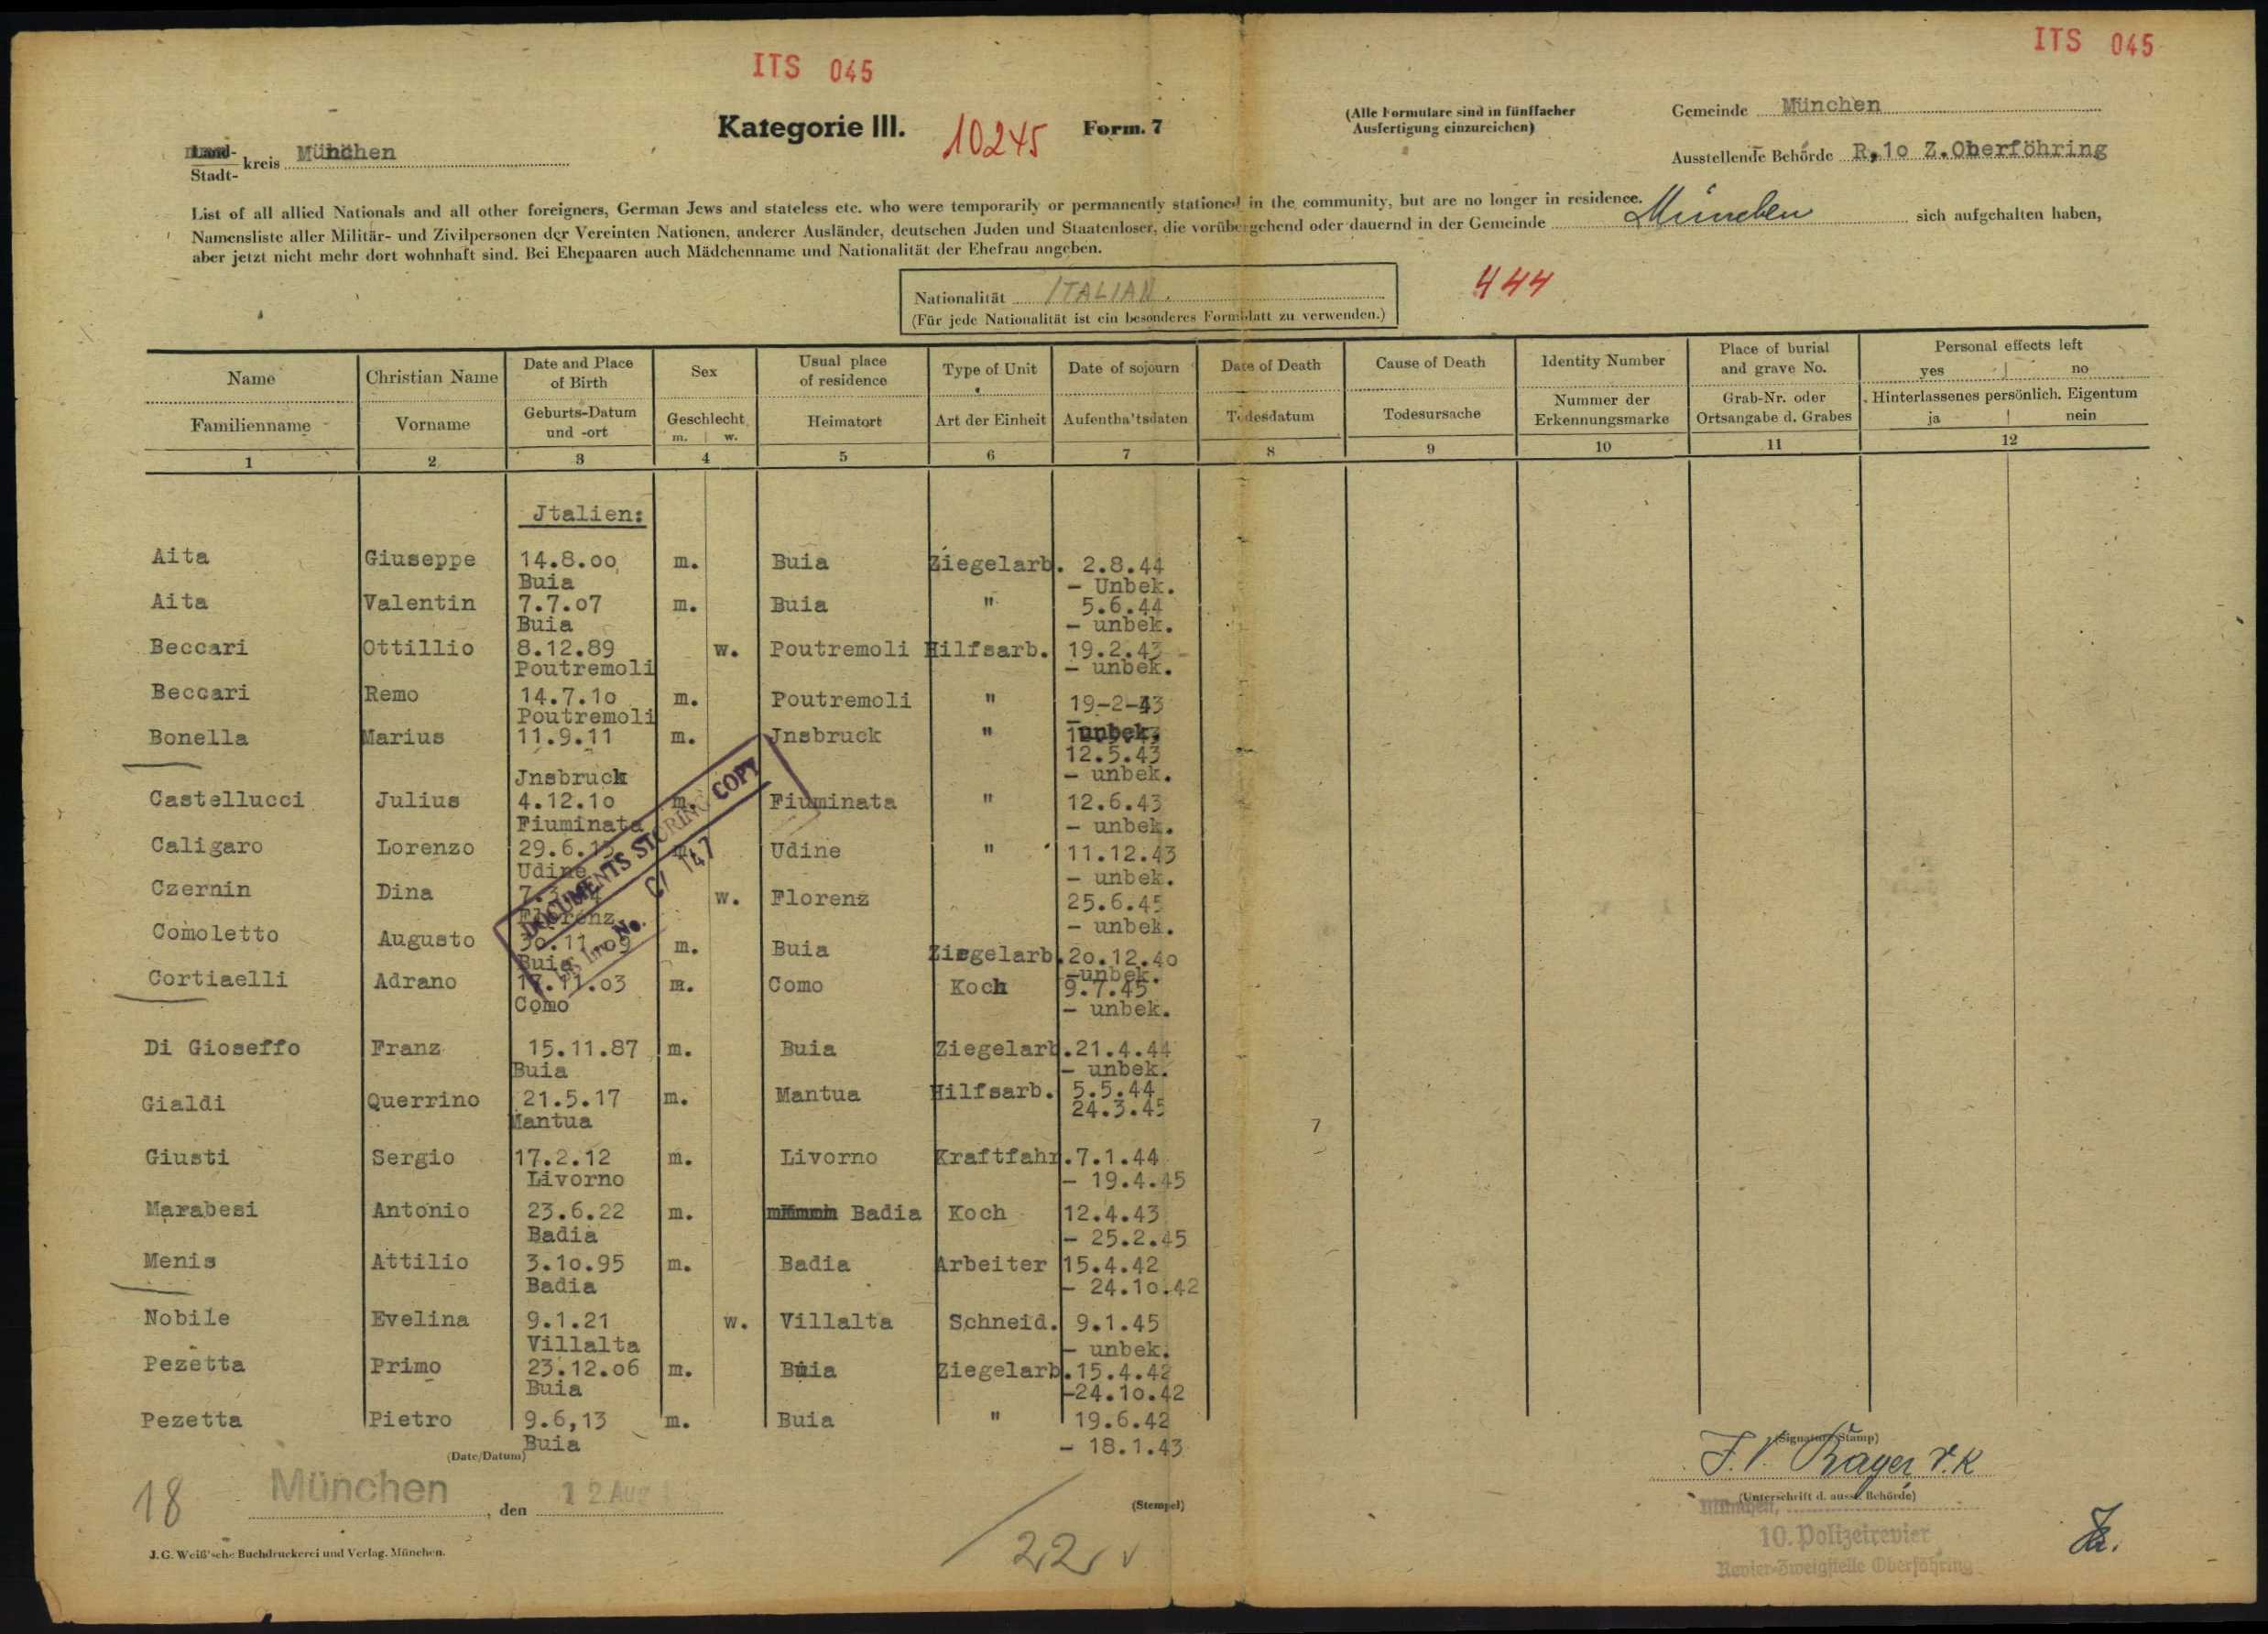 ITS 045
ITS 045
Kategorie III. 10245 Form. 7
(Alle Formulare sind in fünffacher
Ausfertigung einzureichen)
Gemeinde München
Land-
Stadt- kreis München
Ausstellende Behörde R.10 Z.Oberföhring
List of all allied Nationals and all other foreigners, German Jews and stateless etc. who were temporarily or permanently stationed in the community, but are no longer in residence.
Namensliste aller Militär- und Zivilpersonen der Vereinten Nationen, anderer Ausländer, deutschen Juden und Staatenloser, die vorübergehend oder dauernd in der Gemeinde München sich aufgehalten haben,
aber jetzt nicht mehr dort wohnhaft sind. Bei Ehepaaren auch Mädchenname und Nationalität der Ehefrau angeben.
Nationalität ITALIAN.
(Für jede Nationalität ist ein besonderes Formblatt zu verwenden.)
444
Name Christian Name Date and Place of Birth Sex Usual place of residence Type of Unit Date of sojourn Date of Death Cause of Death Identity Number Place of burial and grave No. Personal effects left yes no
Familienname Vorname Geburts-Datum und -ort Geschlecht m. w. Heimatort Art der Einheit Aufenthaltsdaten Todesdatum Todesursache Nummer der Erkennungsmarke Grab-Nr. oder Ortsangabe d. Grabes Hinterlassenes persönlich. Eigentum ja nein
1 2 3 4 5 6 7 8 9 10 11 12
Jtalien:
Aita Giuseppe 14.8.00 m. Buia Ziegelarb. 2.8.44
Buia - Unbek.
Aita Valentin 7.7.07 m. Buia " 5.6.44
Buia - unbek.
Beccari Ottillio 8.12.89 w. Poutremoli Hilfsarb. 19.2.43
Poutremoli - unbek.
Beccari Remo 14.7.10 m. Poutremoli " 19-2-43
Poutremoli - unbek.
Bonella Marius 11.9.11 m. Jnsbruck "
12.5.43
Jnsbruck - unbek.
Castellucci Julius 4.12.10 m. Fiuminata " 12.6.43
Fiuminata - unbek.
Caligaro Lorenzo 29.6.13 m. Udine " 11.12.43
Udine - unbek.
Czernin Dina w. Florenz 25.6.45
Florenz - unbek.
Comoletto Augusto 30.11.09 m. Buia Ziegelarb. 20.12.40
Buia -unbek.
Cortiaelli Adrano 17.11.03 m. Como Koch 9.7.45
Como - unbek.
Di Gioseffo Franz 15.11.87 m. Buia Ziegelarb. 21.4.44
Buia - unbek.
Gialdi Querrino 21.5.17 m. Mantua Hilfsarb. 5.5.44
Mantua 24.3.45
Giusti Sergio 17.2.12 m. Livorno Kraftfahr. 7.1.44
Livorno - 19.4.45
Marabesi Antonio 23.6.22 m. Badia Koch 12.4.43
Badia - 25.2.45
Menis Attilio 3.10.95 m. Badia Arbeiter 15.4.42
Badia - 24.10.42
Nobile Evelina 9.1.21 w. Villalta Schneid. 9.1.45
Villalta - unbek.
Pezetta Primo 23.12.06 m. Buia Ziegelarb. 15.4.42
Buia -24.10.42
Pezetta Pietro 9.6,13 m. Buia " 19.6.42
Buia - 18.1.43
DOCUMENTS STORING COPY
No.
7
(Date/Datum)
(Signature Stamp)
J.V. Bayer
18 München, den 12. Aug
(Stempel)
(Unterschrift d. ausst. Behörde)
München,
10. Polizeirevier
Revier-Zweigstelle Oberföhring
J. G. Weiß'sche Buchdruckerei und Verlag. München.
22